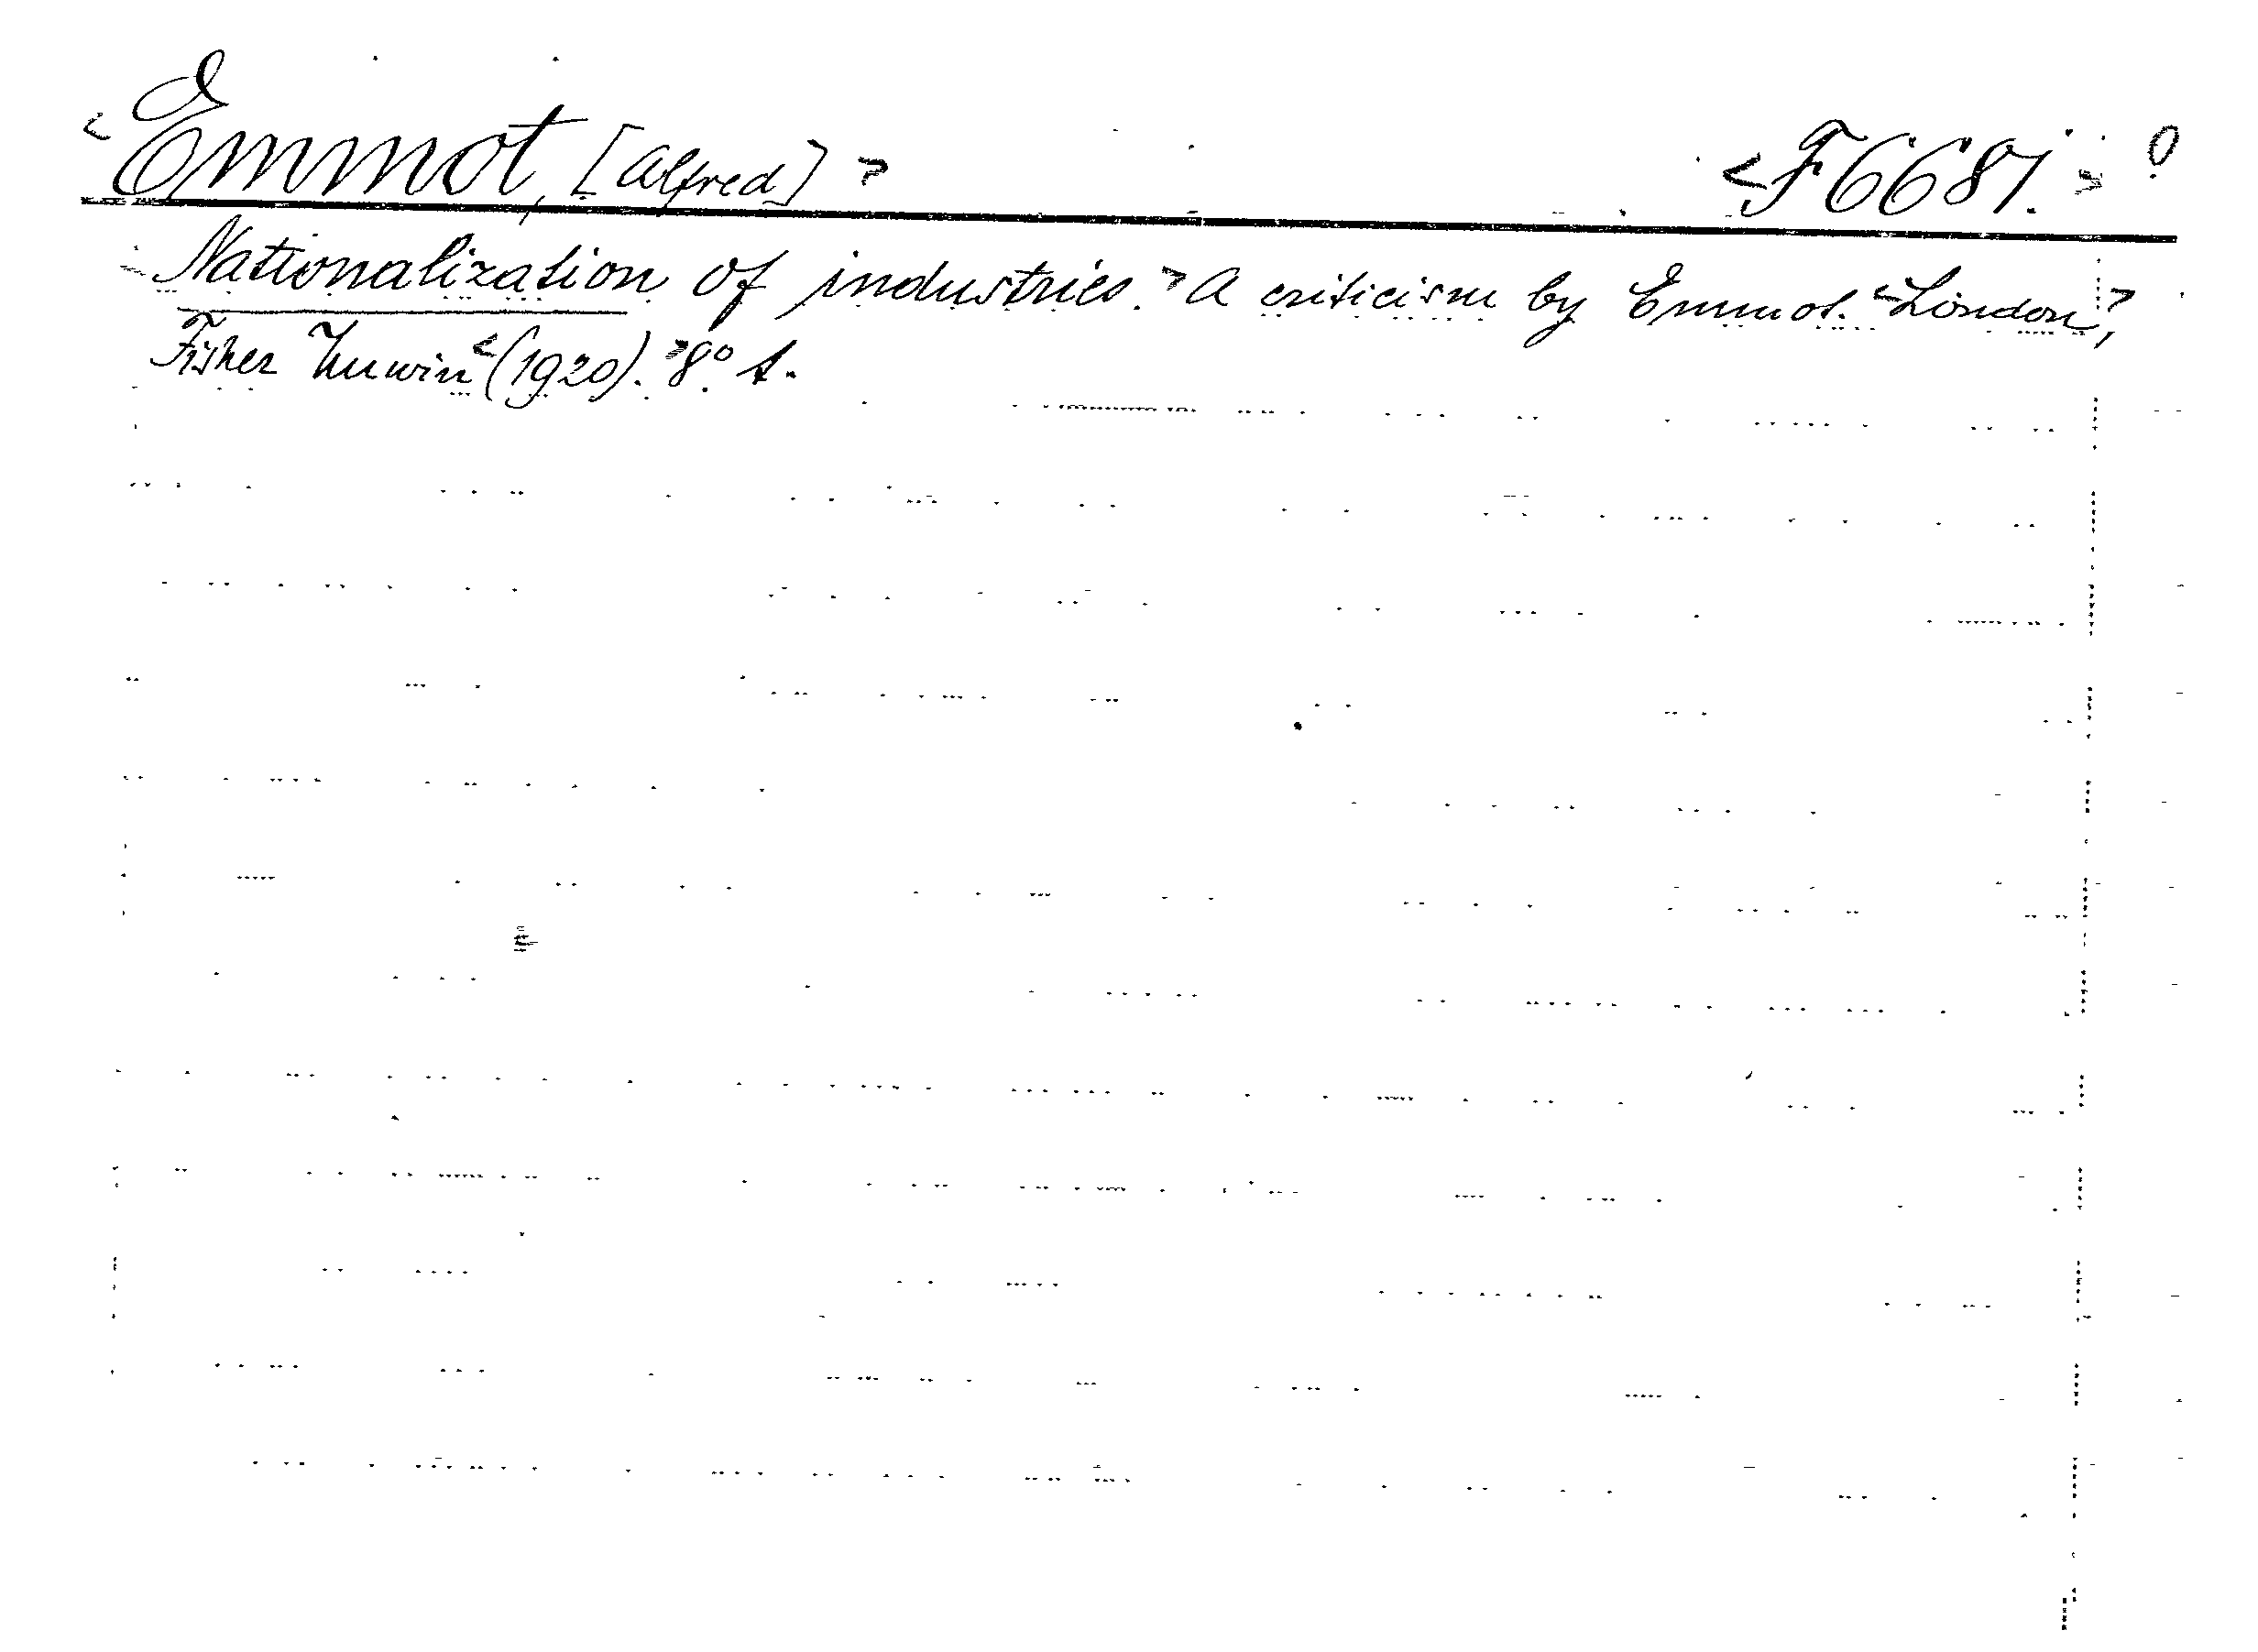 <Emmot, [Alfred]> <F 6687.> 0
<Nationalization of industries.> A criticism by Emmot. <London,>
Fisher Unwin <(1920).> 8° t.